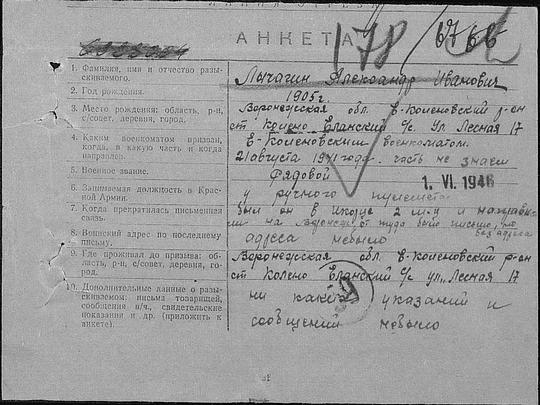 АНКЕТА
178
1. Фамилия, имя и отчество разы-
скиваемого.
Лычагин Александр Иванович
2. Год рождения.
1905г.
3. Место рождения: область, р-н,
с/совет, деревня, город.
Воронежская обл. В-Коленовский р-он
ст Колено Еланский С/с. Ул Лесная 17
4. Каким военкоматом призван,
когда, в какую часть и когда
направлен.
В-Коленовским военкоматом.
21 августа 1941 года. часть не знаем
5. Военное звание.
Рядовой
1. VI. 1946
6. Занимаемая должность в Крас-
ной Армии.
у ручного пулемета
7. Когда прекратилась письменная
связь.
был он в 2 и направи-
ли на Воронеж, от туда было письмо, но
без адреса
8. Воинский адрес по последнему
письму.
адреса небыло
9. Где проживал до призыва: об-
ласть, р-н, с/совет, деревня, го-
род.
Воронежская обл В-Коленовский р-он
ст Колено Еланский С/с ул. Лесная 17
10. Дополнительные данные о разы-
скиваемом: письма товарищей,
сообщения в/ч., свидетельские
показания и др. (приложить к
анкете).
ни каких указаний и
сообщений небыло